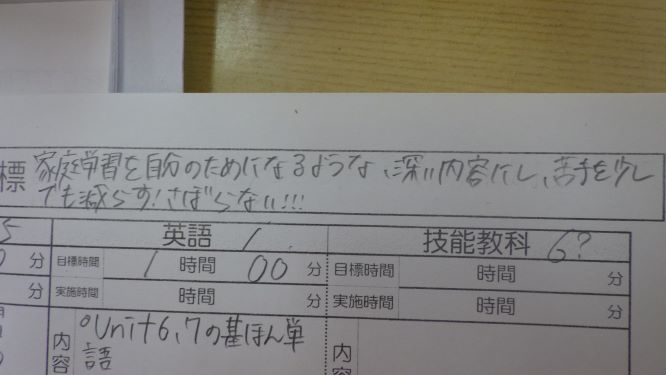 標 家庭学習を自分のためになるような、深い内容にし、苦手を少し
でも減らす！さぼらない!!!
5 英語 1. 技能教科 6?
0 分 目標時間 1 時間 00 分 目標時間 時間 分
分 実施時間 時間 分 実施時間 時間 分
内容 °Unit6,7の基ほん単
語 内容